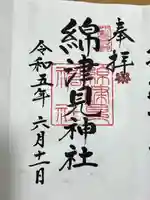 奉拝
綿津見神社
令和五年 六月十一日